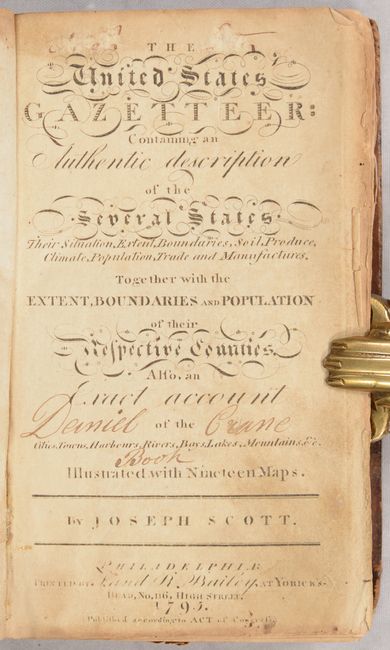 THE
United States
GAZETTEER:
Containing an
Authentic description
of the
Several States.
Their Situation, Extent, Boundaries, Soil, Produce,
Climate, Population, Trade and Manufactures.
Together with the
EXTENT, BOUNDARIES AND POPULATION
of their
Respective Counties.
Also, an
Exact account
Daniel of the Crane
Cities, Towns, Harbours, Rivers, Bays, Lakes, Mountains, &c.
Book
Illustrated with Nineteen Maps.
by JOSEPH SCOTT.
PHILADELPHIA:
PRINTED BY F. and R. Bailey, AT YORICK'S-
HEAD, No. 116, HIGH STREET.
1795.
Published according to ACT of Congress.